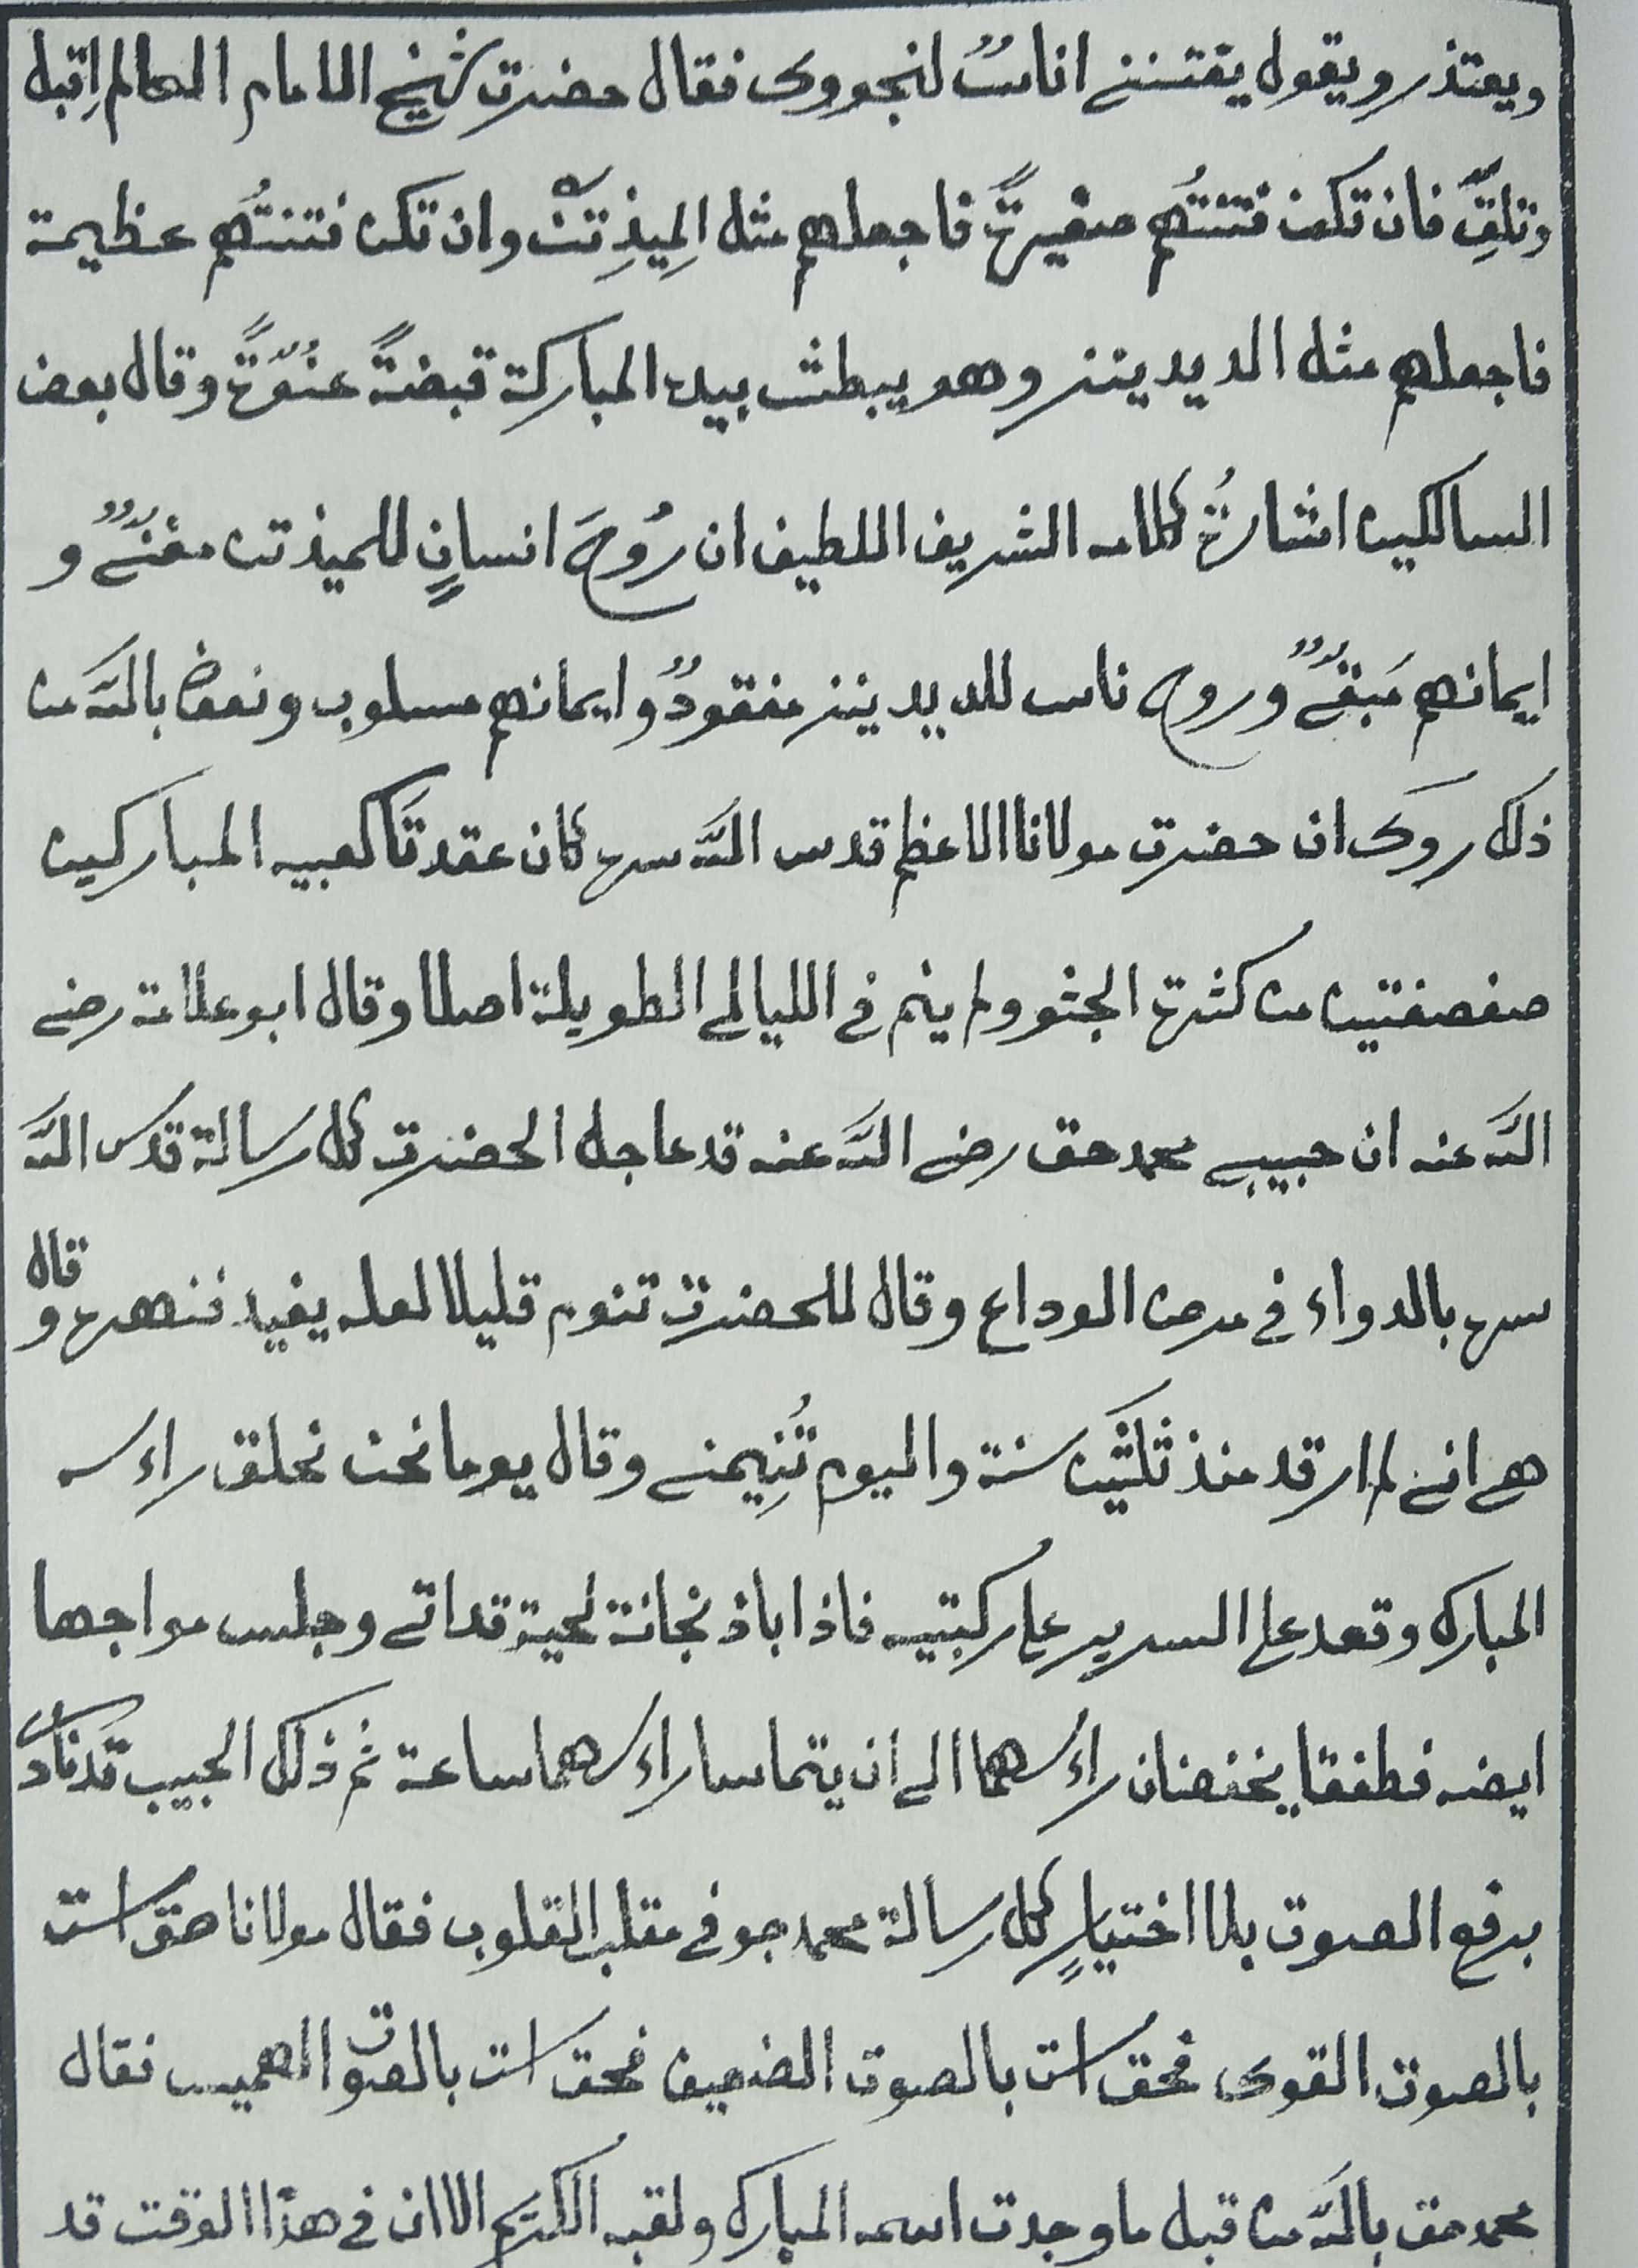 ويعتذر ويقول يفتننے اناسٌ لنجووی فقال حضرت شيخ الامام العالم اِقبل
وتلقِّ فان تكن فتنتُهم صغيرةً فاجعلهم مثل المِيذِتن وان تكن فتنتُهم عظيمة
فاجعلهم مثل الديدينز وهو يبطش بيده المباركة قبضةً عنُوّةً وقال بعض
السالكين اشارةُ كلامه الشريف اللطيف ان رُوحَ انسانٍ للميذتن مفنےٌ و
ايمانهم مَبقےٌ وروح ناس للديدينز مفقودٌ وايمانهم مسلوب ونعوذ بالله من
ذلك روی ان حضرت مولانا الاعظم قدس الله سره كان عقدتَا كعبيه المباركين
صفصفتين من كثرة الجثو ولم ينم فے الليالے الطويلة اصلا وقال ابو علامة رضے
الله عنه ان حبيبے محمد حق رضے الله عنه قد عاجل الحضرت كل رسالة قدس الله
سره بالدواء فی مرض الوداع وقال للحضرت تنوم قليلا لعله يفيد فنهره و قال
هے انے لم ارقد منذ ثلثين سنة واليوم تُنِيمنے وقال يوما نحن نحلق راءسه
المبارك وقعد علے السرير علے ركبتيه فاذا باذنجانة لحية قداتے وجلس مواجها
ايضه فطفقا يخفضان راءسهما الے ان يتماسا راءسهما ساعة ثم ذلك الحبيب قد نادی
برفع الصوت بلا اختيارٍ كل رسالة محمد جو فے مقلب القلوب فقال مولانا حق است
بالصوت القوی فحق است بالصوت الضعيف فحق است بالصوت الهميس فقال
محمد حق بالله من قبل ما وجدت اسمه المبارك ولقبه الكريم الا ان فے هذا الوقت قد